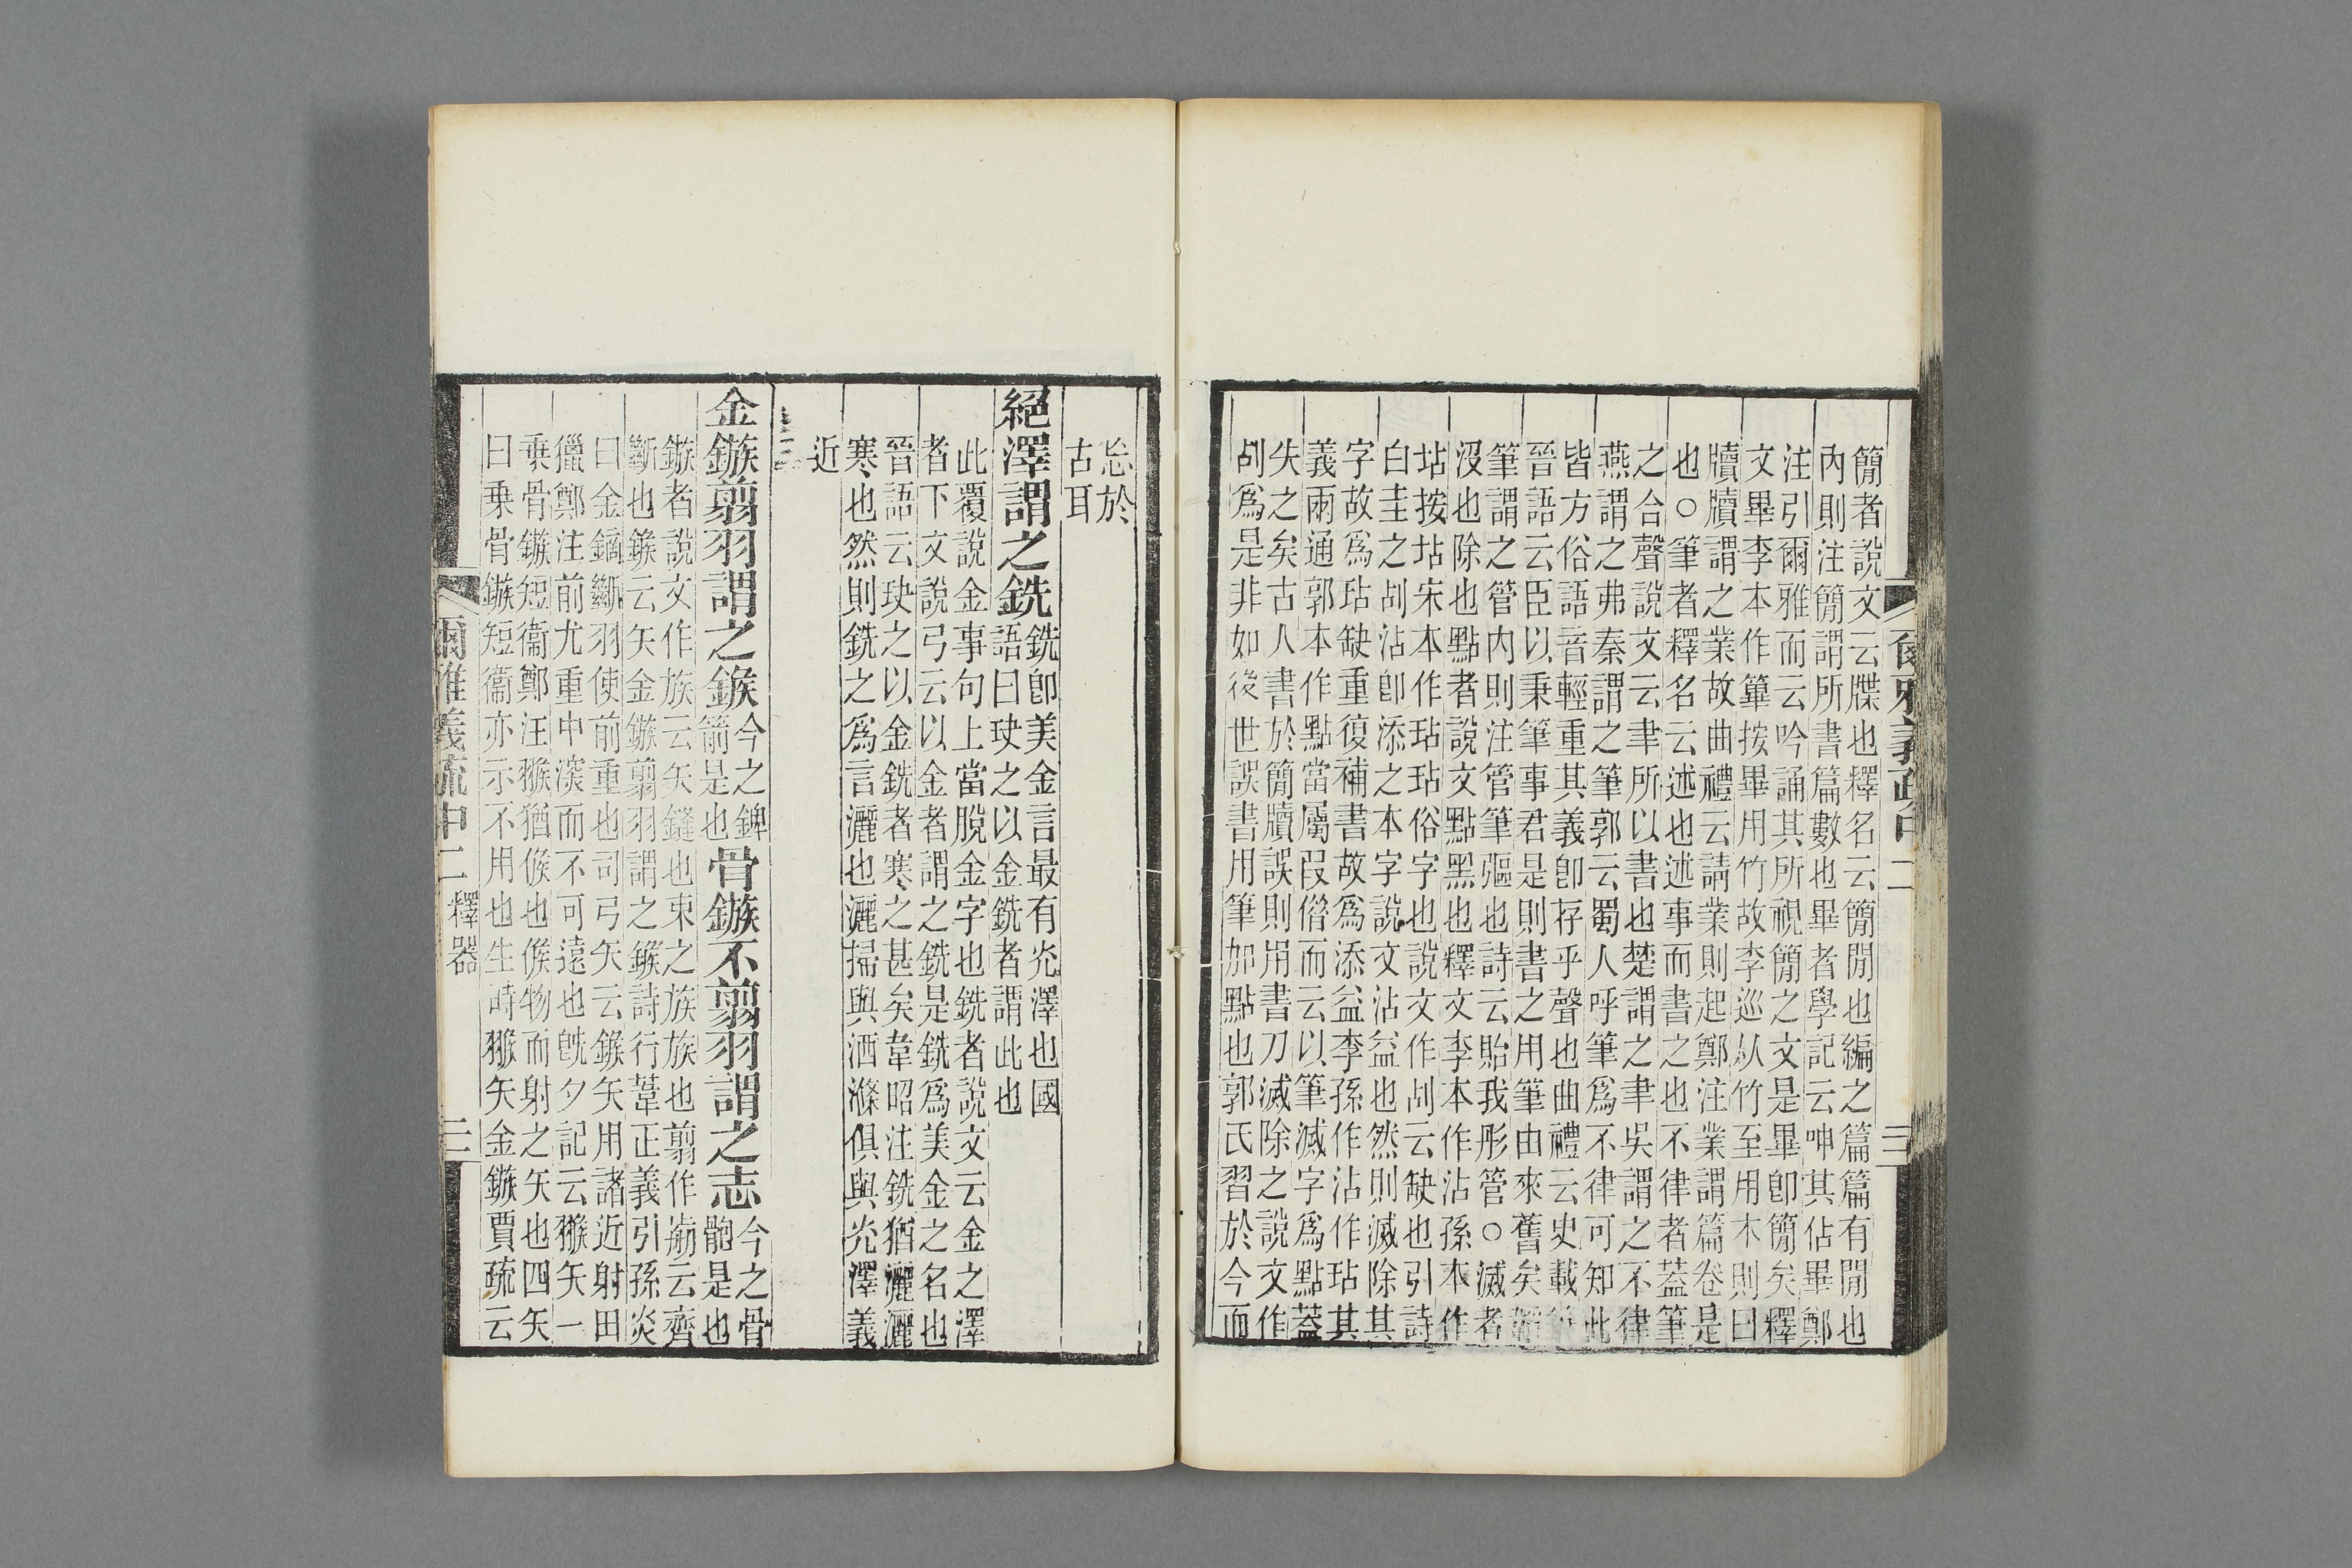 簡者說文云牒也釋名云簡閒也編之篇篇有閒也
內則注簡謂所書篇數也畢者學記云呻其佔畢鄭
注引爾雅而云吟誦其所視簡之文是畢卽簡矣釋
文畢李本作篳按畢用竹故李巡从竹至用木則曰
牘牘謂之業故曲禮云請業則起鄭注業謂篇卷是
也○筆者釋名云述也述事而書之也不律者蓋筆
之合聲說文云聿所以書也楚謂之聿吳謂之不律
燕謂之弗秦謂之筆郭云蜀人呼筆爲不律可知此
皆方俗語音輕重其義卽存乎聲也曲禮云史載筆
晉語云臣以秉筆事君是則書之用筆由來舊矣
筆謂之管內則注管筆彄也詩云貽我彤管○滅者
沒也除也點者說文點黑也釋文李本作沾孫本作
坫按坫宋本作玷玷俗字也說文作㓠云缺也引詩
白圭之㓠沾卽添之本字說文沾益也然則滅除其
字故爲玷缺重復補書故爲添益李孫作沾作玷其
義兩通郭本作點當屬叚僭而云以筆滅字爲點蓋
失之矣古人書於簡牘誤則用書刀滅除之說文作
㓠爲是非如後世誤書用筆加點也郭氏習於今而
爾雅義疏中二
三
忘於
古耳
絕澤謂之銑銑卽美金言最有光澤也國
語曰玦之以金銑者謂此也
此覆說金事句上當脫金字也銑者說文云金之澤
者下文說弓云以金者謂之銑是銑爲美金之名也
晉語云玦之以金銑者寒之甚矣韋昭注銑猶灑灑
寒也然則銑之爲言灑也灑掃與洒滌俱與光澤義
近
金鏃翦羽謂之鍭今之錍
箭是也骨鏃不翦羽謂之志今之骨
骲是也
鏃者說文作族云矢鏠也束之族族也翦作㔑云齊
斷也鍭云矢金鏃翦羽謂之鍭詩行葦正義引孫炎
曰金鏑斷羽使前重也司弓矢云鍭矢用諸近射田
獵鄭注前尤重中深而不可遠也旣夕記云猴矢一
乗骨鏃短衞鄭汪猴猶候也候物而射之矢也四矢
曰乗骨鏃短衞亦示不用也生時猴矢金鏃賈疏云
爾雅義疏中二 釋器
三